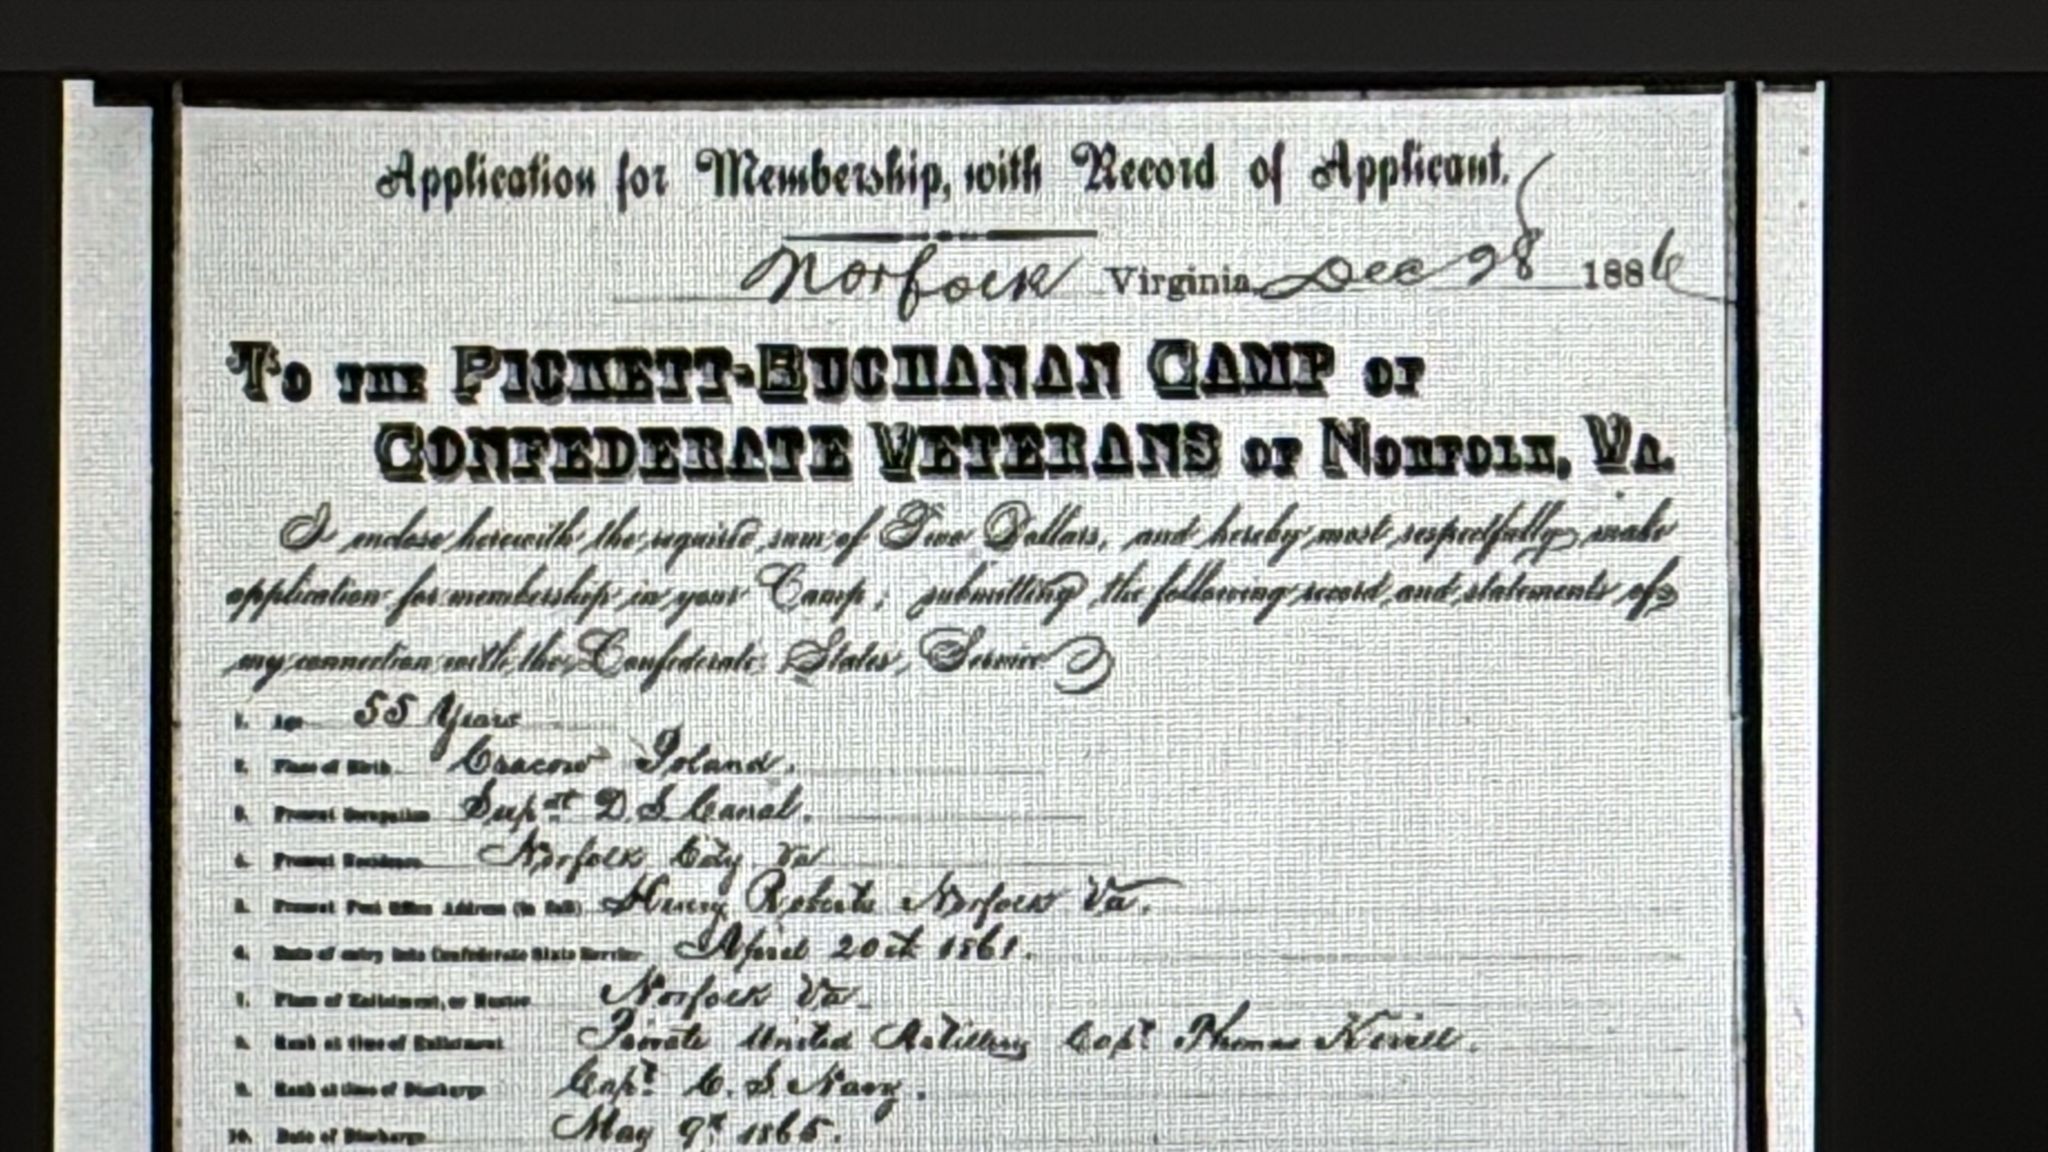 Application for Membership, with Record of Applicant.
Norfolk Virginia, Dec 28 1886
TO THE PICKETT-BUCHANAN CAMP OF
CONFEDERATE VETERANS OF NORFOLK, VA.
I enclose herewith the required sum of Two Dollars, and hereby most respectfully make
application for membership in your Camp; submitting the following record and statements of
my connection with the Confederate States Service
1. Age 55 Years
2. Place of Birth Cracow Poland.
3. Present Occupation Supt D. S. Canal.
4. Present Residence Norfolk City Va
5. Present Post Office Address (in full) Henry Roberts Norfolk Va.
6. Date of entry into Confederate State Service April 20th 1861.
7. Place of Enlistment, or Muster Norfolk Va.
8. Rank at time of Enlistment Private United Artillery Capt Thomas Kevill.
9. Rank at time of Discharge Capt C. S. Navy.
10. Date of Discharge May 9th 1865.